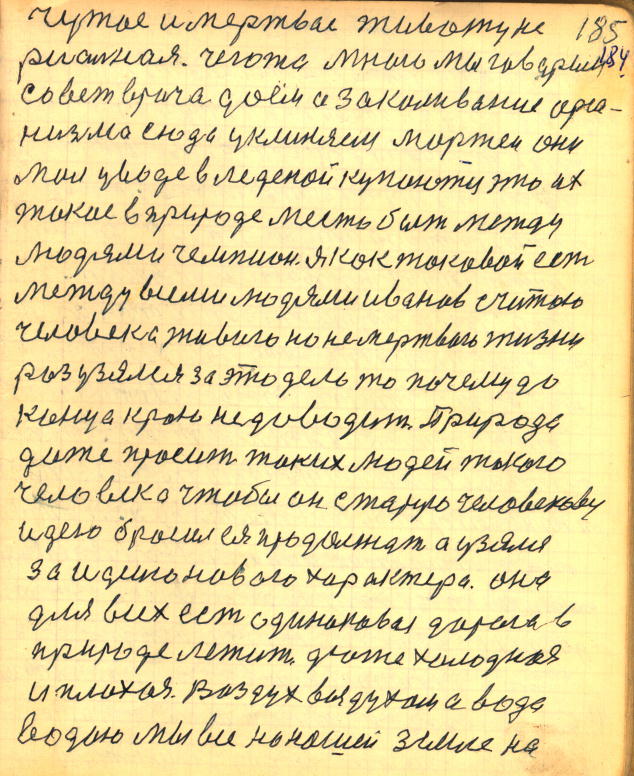 чутое и мертвое животу не 185
риалная. чегожа много мы говарим 184
совет врача даём а закаливание орга-
низма сюда уклиняем моржеи они
мол у воде в леденой купаютц это их
такое в природе месть быт между
людями чемпион. я как таковой ест
между всеми людями иванов считаю
человека живого но не мертвого жизни
раз узялся за это дело то почему до
конца краю не доводит. Природа
даже просит таких людей такого
человека чтобы он старую человекову
идею бросил ея продолжат а узялся
за идино нового характера. она
для всих ест одинаковая дорога в
природе лежит. даже холодная
и плохая. Воздух воздухом а вода
водою мы все на нашей земле на